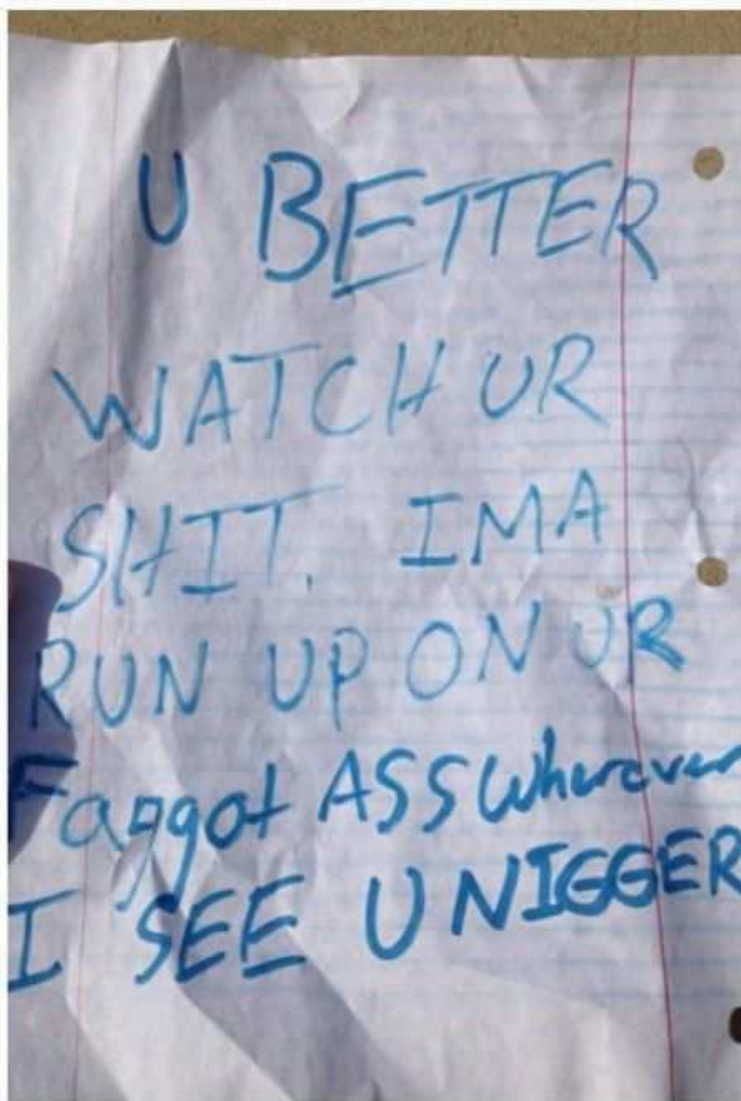 U BETTER
WATCH UR
SHIT. IMA
RUN UP ON UR
Faggot ASS Wherever
I SEE U NIGGER